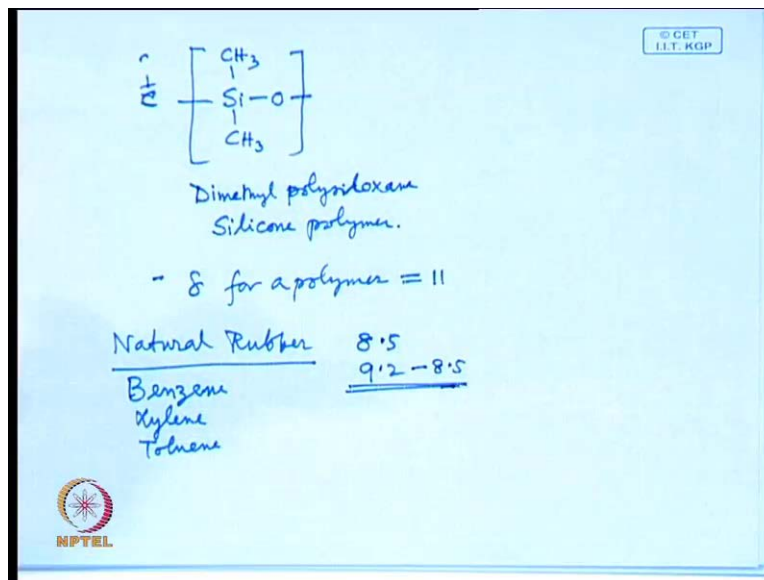 © CET
I.I.T. KGP
CH3
Si-O
CH3
Dimethyl polysiloxane
Silicone polymer.
- δ for a polymer = 11
Natural Rubber 8.5
Benzene 9.2-8.5
Xylene
Toluene
NPTEL